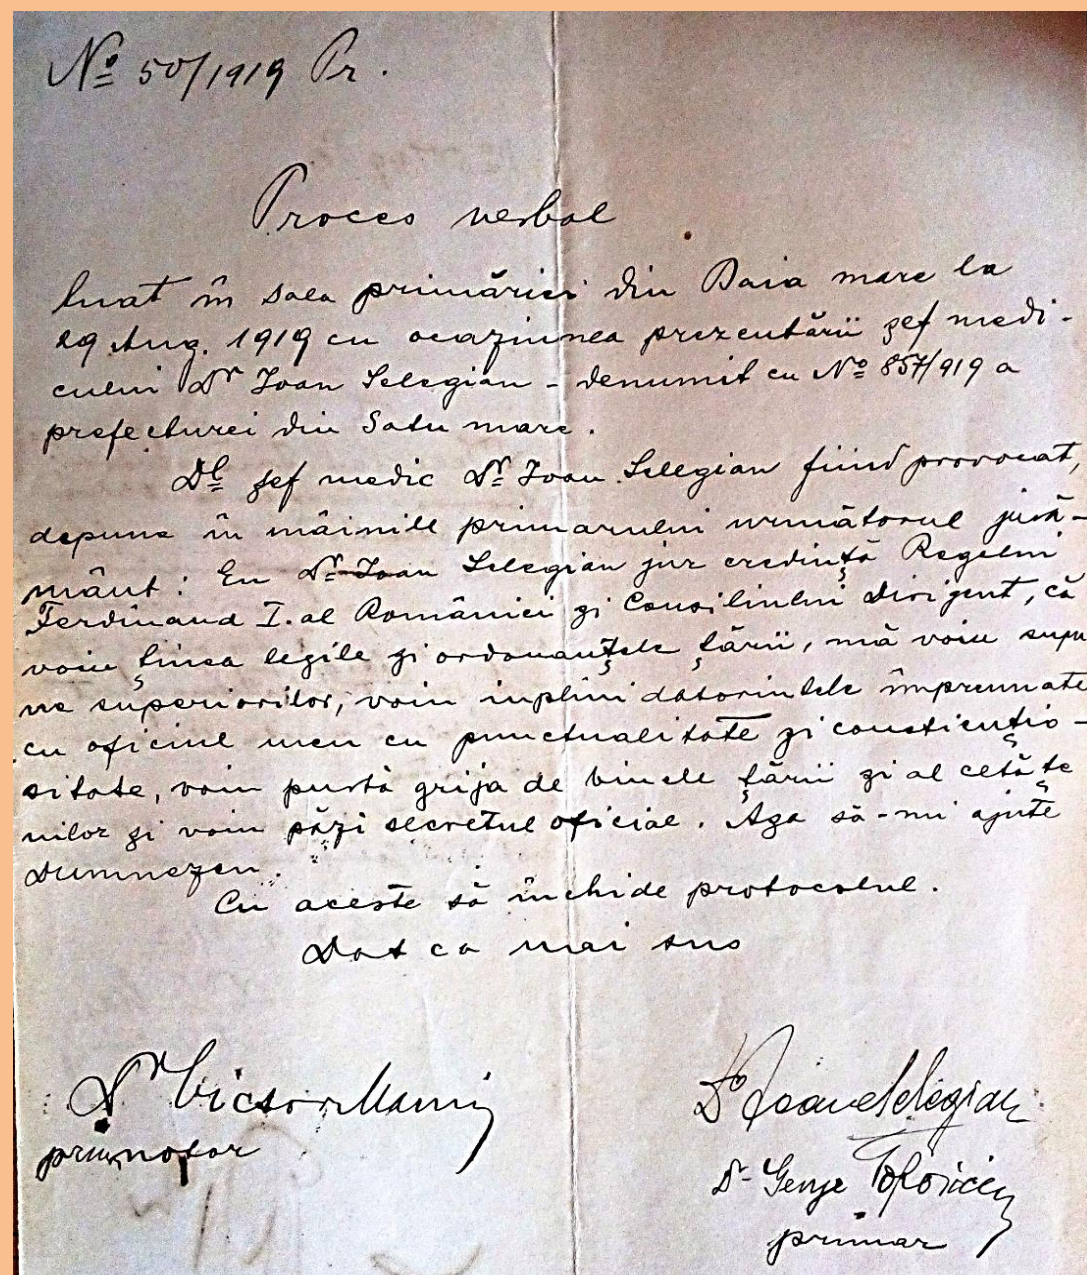 No 50/1919 Pr.
Proces verbal
luat în sala primăriei din Baia mare la
29 Aug. 1919 cu ocaziunea prezentării șef medi-
cului Dr Ioan Selegian - denumit cu No 857/919 a
prefecturei din Satu mare.
Dl șef medic Dr Ioan Selegian fiind provocat,
depune în mâinile primarului următorul jură-
mânt: Eu Dr Ioan Selegian jur credință Regelui
Ferdinand I. al României și Consiliului Dirigent, că
voiu ținea legile și ordonanțele țării, mă voiu supu
ne superiorilor, voiu inplini datorintele împreunate
cu oficiul meu cu punctualitate și constiențio-
sitate, voiu purtà grija de binele țării și al cetățe
nilor și voiu păzi secretul oficial. Așa să-mi ajute
Dumnezeu.
Cu aceste să închide protocolul.
Dat ca mai sus
Dr Victor Maniu
primnotar
Dr Ioan Selegian
Dr George
primar